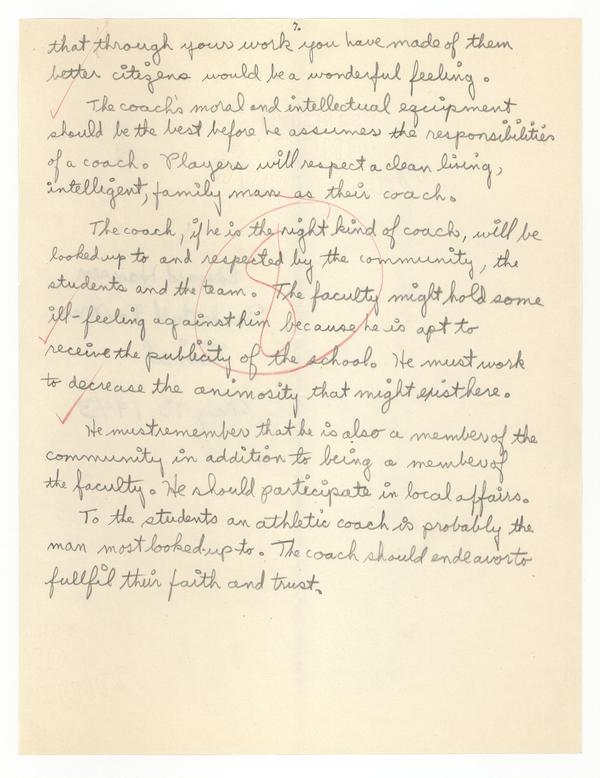 7.
that through your work you have made of them
better citizens would be a wonderful feeling.
The coach's moral and intellectual equipment
should be the best before he assumes the responsibilities
of a coach. Players will respect a clean living,
intelligent, family man as their coach.
The coach, if he is the right kind of coach, will be
looked up to and respected by the community, the
students and the team. The faculty might hold some
ill-feeling against him because he is apt to
receive the publicity of the school. He must work
to decrease the animosity that might exist here.
He must remember that he is also a member of the
community in addition to being a member of
the faculty. He should participate in local affairs.
To the students an athletic coach is probably the
man most looked-up-to. The coach should endeavor to
fullfil their faith and trust.